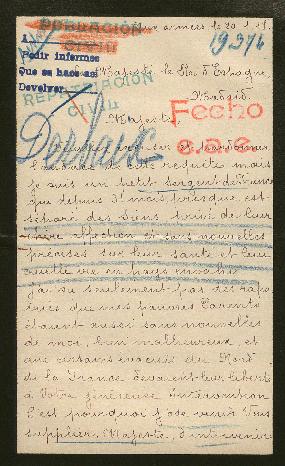 POBLACIÓN
CIVIL
aux armées le 20.1.18.
A
Pedir informes
Que se hace así
Devolver
19374
Majesté le Roi d'Espagne
REPATRIACIÓN
CIVIL
Madrid
Fecho
Majesté
excuser et pardonner
de cette requête mais
je suis un petit sergent de France
que depuis 3 mois presque est
séparé des siens, privé de leur
chère affection et sans nouvelles
précises sur leur santé et leur
vie en pays envahi
J'ai su seulement par des rapa
triés que mes pauvres Parents
étaient aussi sans nouvelles
de moi, bien malheureux, et
que certains évacués du Nord
de la France devaient leur liberté
à Votre généreuse intervention
C'est pourquoi j'ose venir Vous
supplier, Majesté, d'intervenir